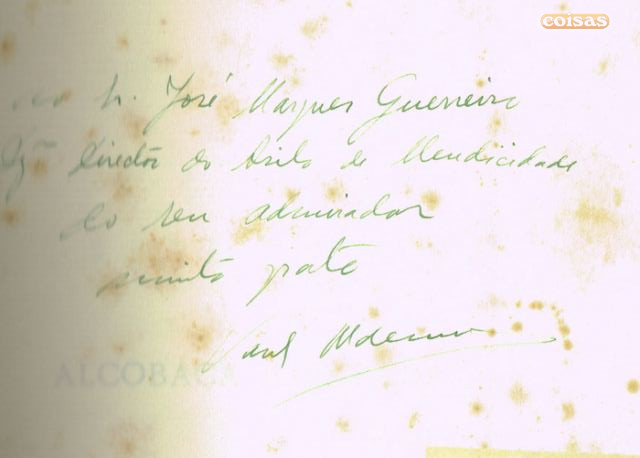 coisas
Sr. José Marques Guerreiro
Director do Asilo de Mendicidade
do seu admirador
muito grato
ALCOBAÇA